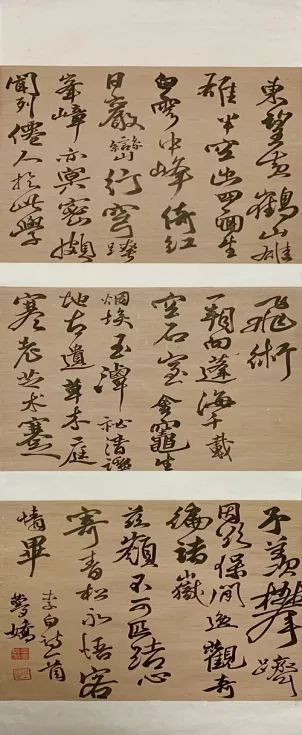 東望黄鶴山雄
雄半空出四面生
白雲中峰倚紅
日巖巒行穹跨
峯嶂亦冥密頗
聞列僊人於此學
飛術
一朝向蓬海千載
空石室金竈生
烟埃玉潭秘清謐
地古遺草木庭
寒老芝术蹇
予羡攀躋
因欲保閒逸觀奇
徧諸嶽
兹嶺不可匹結心
寄青松永悟客
情畢
李白詩一首